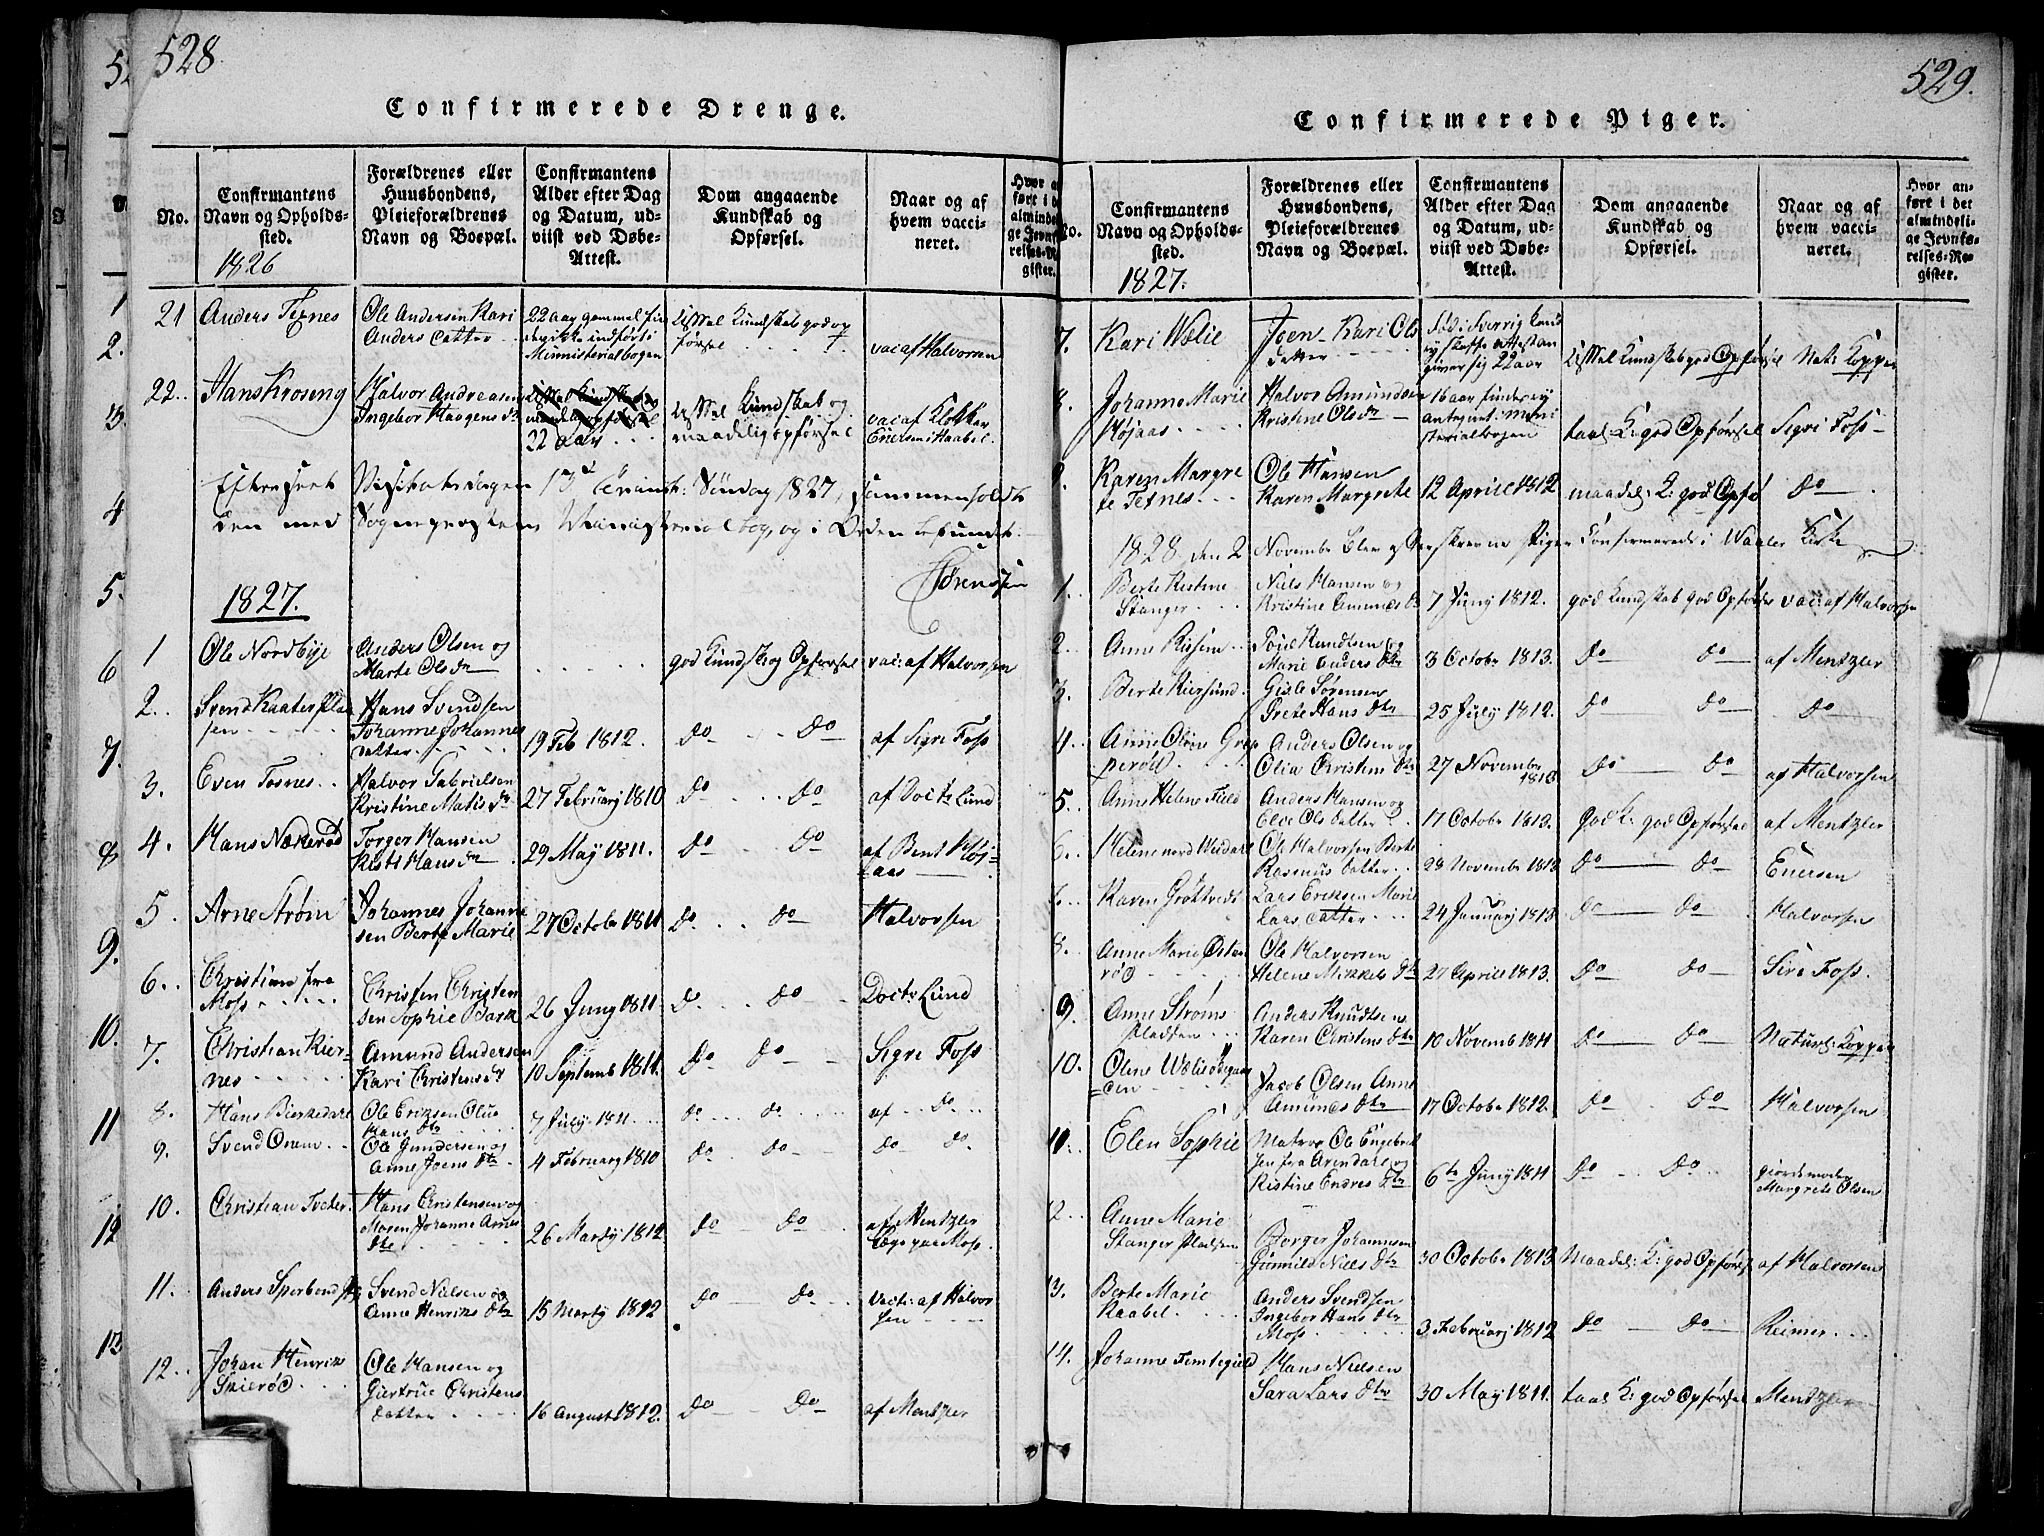 528
Confirmerede Drenge.
No.
Confirmantens Navn og Opholdssted.
Forældrenes eller Huusbondens, Pleieforældrenes Navn og Boepæl.
Confirmantens Alder efter Dag og Datum, udviist ved Døbe-Attest.
Dom angaaende Kundskab og Opførsel.
Naar og af hvem vaccineret.
1826
21 Anders Texnes Ole Andersen Kari 22 aar gammel
Anders Datter
Ministerialbogen vac af Halvorsen
22. Hans Kroseng Halvor Andreasen
Ingebor Haagens dr 22 Aar
Lissel Kundskab og maadelig opførsel
vac af Klokker Ericsen i Haabel.
Efterseet Visitatsdagen 13d Trinit: Søndag 1827, sammenholdt
den med Sogneprestens Ministerialbog, og i Orden befundet.
Sørenssen
1827.
1 Ole Nordbye Anders Olsen og god Kundsk og Opførsel vac: af Halvorsen
Marte Ols dr
2. Svend Kaaterpladsen Hans Svendsen
Johanne Johannes datter 19 Feb 1812. do do af Sigri Foss
3. Even Tosnes Halvor Gabrielsen
Kristine Matis dr 27 Februarj 1810 do do af Doct: Lund
4. Hans Nækerød Torger Hansen
Hans dr 29 May 1811. do do af Bent Højaas
5. Arne Strøm Johannes Johannesen Berte Marie 27 Octobr 1811 do do Halvorsen
6. Christian fra Moss Christen Christensen Sophie Bark 26 Juny 1811 do do Doct: Lund
7. Christian Kiernes Amund Andersen
Kari Christens dr 10 Septemb 1811. do do Sigri Foss
8. Hans Bierkedal Ole Eriksen Olua
Hans dtr 7 July 1811 do do af do
9. Svend Onum Ole Gundersen og
Anne Joens dtr 4 Februarj 1810 do do do do
10. Christian Hans Christensen og
Johanne Arnes dtr 26 Martij 1812 do do af Mentzler
Læge paa Moss.
11. Anders Svend Nielsen og
Anne Henriks dtr 15 Marty 1812 do do vact: af Halvorsen
12. Johan Henrik Skierød Ole Hansen og
Giertrue Christens datter 16 August 1812. do do af Mentzler
529.
Confirmerede Piger.
No.
Confirmantens Navn og Opholdssted.
Forældrenes eller Huusbondens, Pleieforældrenes Navn og Boepæl.
Confirmantens Alder efter Dag og Datum, udviist ved Døbe-Attest.
Dom angaaende Kundskab og Opførsel.
Naar og af hvem vaccineret.
Hvor anført i det almindelige Jevnførelses-Register.
1827.
7. Kari Wølie Joen - Kari Ols datter Fød i Sverrig kand ey skaffe Attest angiver sig 22 aar Lissel Kundskab god Opførsel Nat: Kopper
8. Johanne Marie Højaas Halvor Amundsen
Kristine Ols dr 16 aar findes ey antegnt: ministerialbogen taal: K: god Opførsel Sigri Foss
9. Karen Margrete Texnes Ole Hansen
Karen Margrete 12 April 1812 maadel: K: god Opfø do
1828 den 2 November blev Piger Confirmerede i Waaler Kirke
1. Berte Kistine Stanger Niels Hansen og
Kristine Amunds dr 7 Juny 1812. god Kundskab god Opførsel vac: af Halvorsen
2. Anne Poul Knudsen og
Marie Anders dtr 3 October 1813. do do af Mentzler
3. Berte Kiersund Gisle Sørensen
Grete Hans dtr 25 July 1812. do do do
4. Anne Oline Grepperød Anders Olsen og
Olia Christens dtr 27 November 1813 do do af Halvorsen
5. Anne Helene Field Anders Hansen og
Ols datter 17 October 1813. god K: god Opførsel af Mentzler
6. Helene nord Ole Halvorsen Berte
Rasmus datter 28 November 1813 do do Enersen
Karen Lars Eriksen Marie
Lars datter 24 Januarj 1813 do do Halvorsen
8. Anne Marie Østenrød Ole Halvorsen
Helene Mikkels dtr 27 April 1813. do do Siri Foss.
9. Anne Strøms pladsen Anders Knudtsen
Karen Christens dtr 10 Novemb 1811 do do Naturl: Kopper
10. Oline Jacob Olsen Anne
Amunds dtr 17 October 1812. do do Halvorsen
11. Elen Sophie Matros Ole Engebretsen fra Arendal og
Kistine Endres dtr 6te Juny 1811 do do giordemoder
Margrete Olsen
12. Anne Marie Stanger Pladsen Borger Johannesen
Gunnild Niels dtr 30 October 1813 Maadel: K: god Opførsel af Halvorsen
13. Berte Marie Raabel Anders Svendsen
Ingebor Hans dtr
Moss 3 Februarj 1812 do do Reimer
14. Johanne Femtegield Hans Nielsen
Sara Lars dtr 30 May 1811. taal K: god Opførsel Mentzler